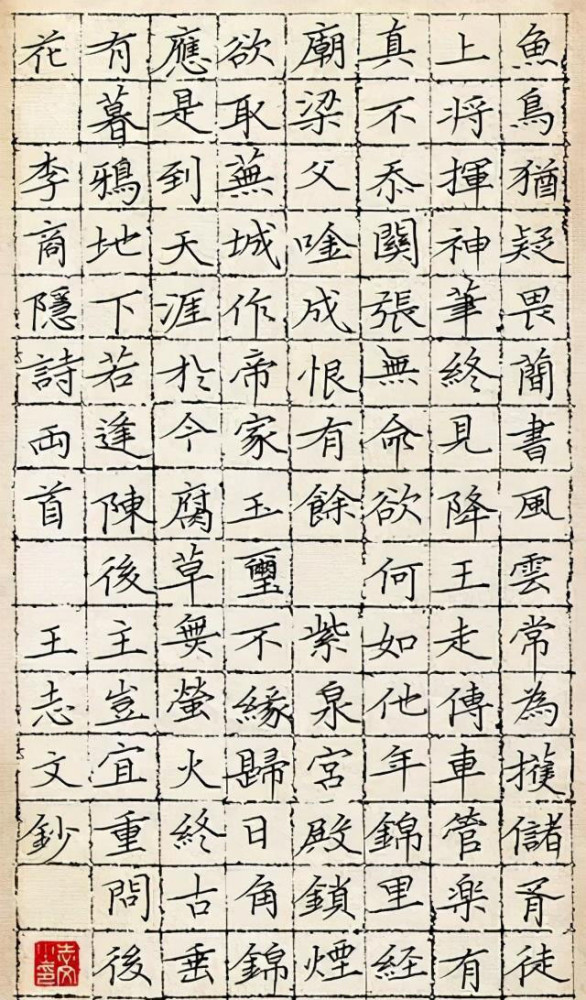 魚鳥猶疑畏簡書風雲常為擭儲胥徒
上將揮神筆終見降王走傳車管楽有
真不忝關張無命欲何如他年錦里経
廟梁父唫成恨有餘 紫泉宮殿鎖煙
欲取蕪城作帝家玉璽不緣歸日角錦
應是到天涯於今腐草無螢火終古垂
有暮鴉地下若逢陳後主豈宜重問後
花 李商隱詩兩首 王志文鈔